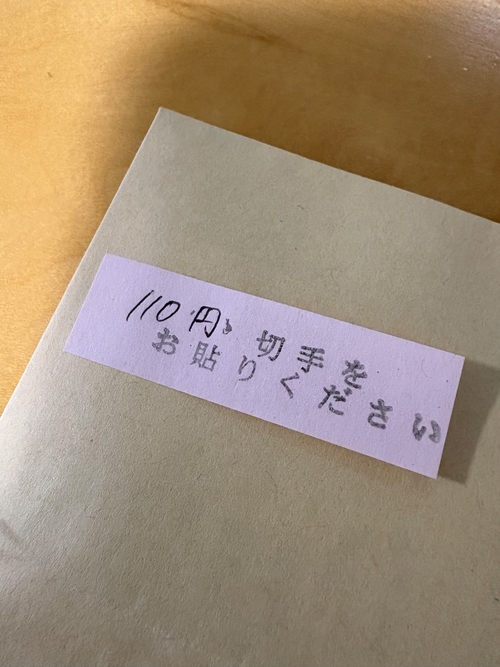 110円 切手を
お貼りください